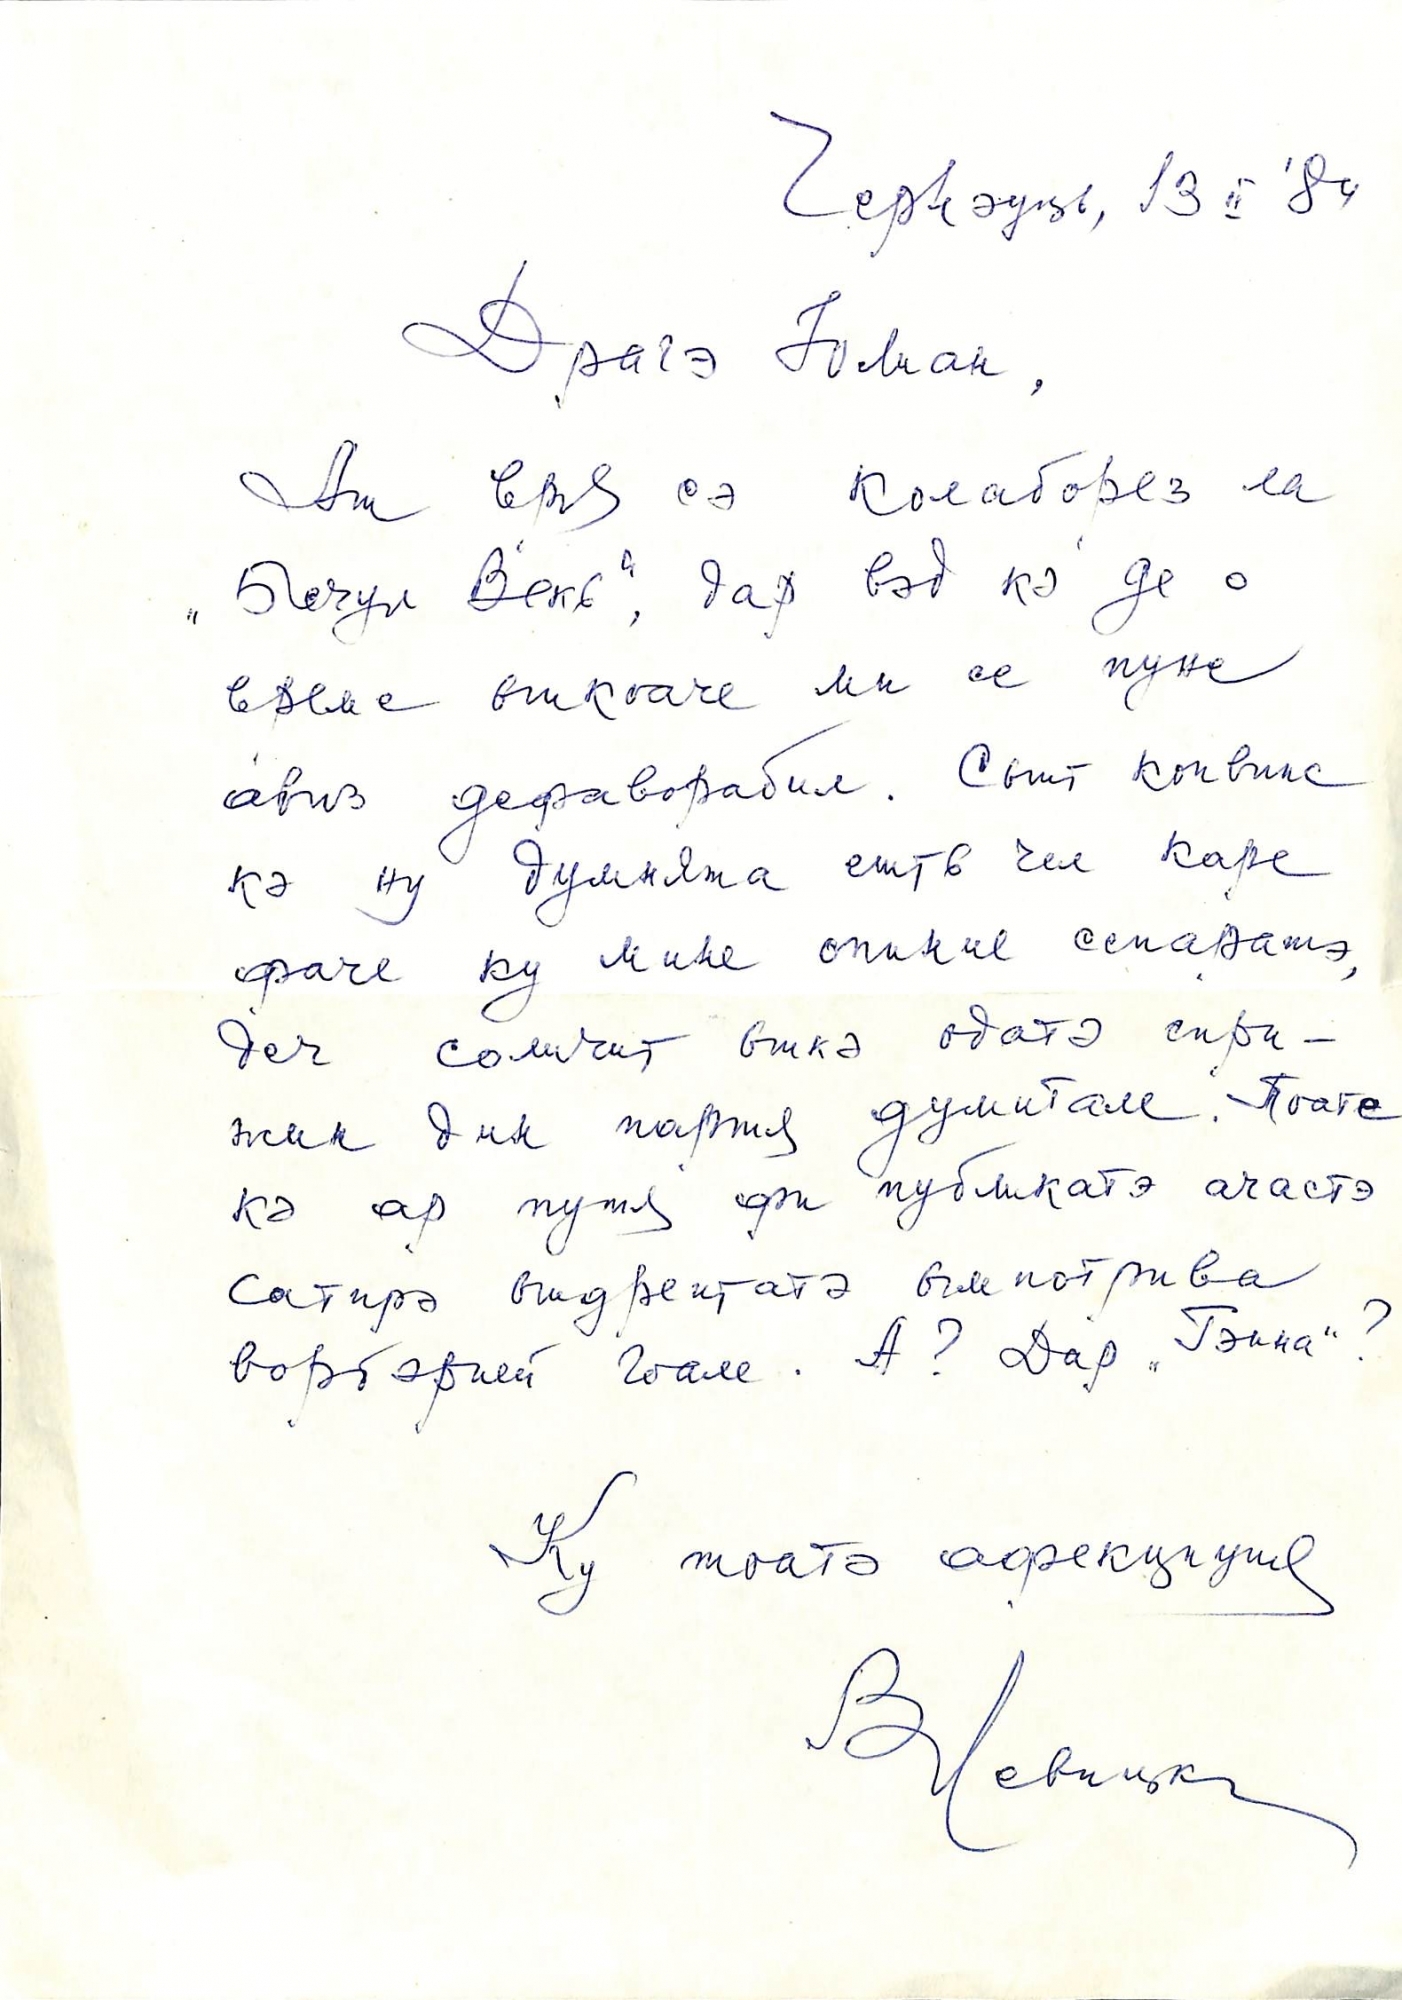 Чернэуць, 13 II '84
Драгэ Юлиан,
Аш вря сэ колаборез ла
„Бечул Векь", дар вэд кэ де о
време ынкоаче ми се пуне
авиз дефаворабил. Сынт конвинс
кэ ну думнята ешть чел каре
фаче ку мине опиние сепаратэ,
деч солičит ынкэ одатэ спри-
жин дин партя думитале. Поате
кэ ар путя фи публикатэ ачастэ
сатирэ ындрептатэ ымпотрива
ворбэрией гоале. А? Дар „Гэина"?
Ку тоатэ афекциуня
В Левицки